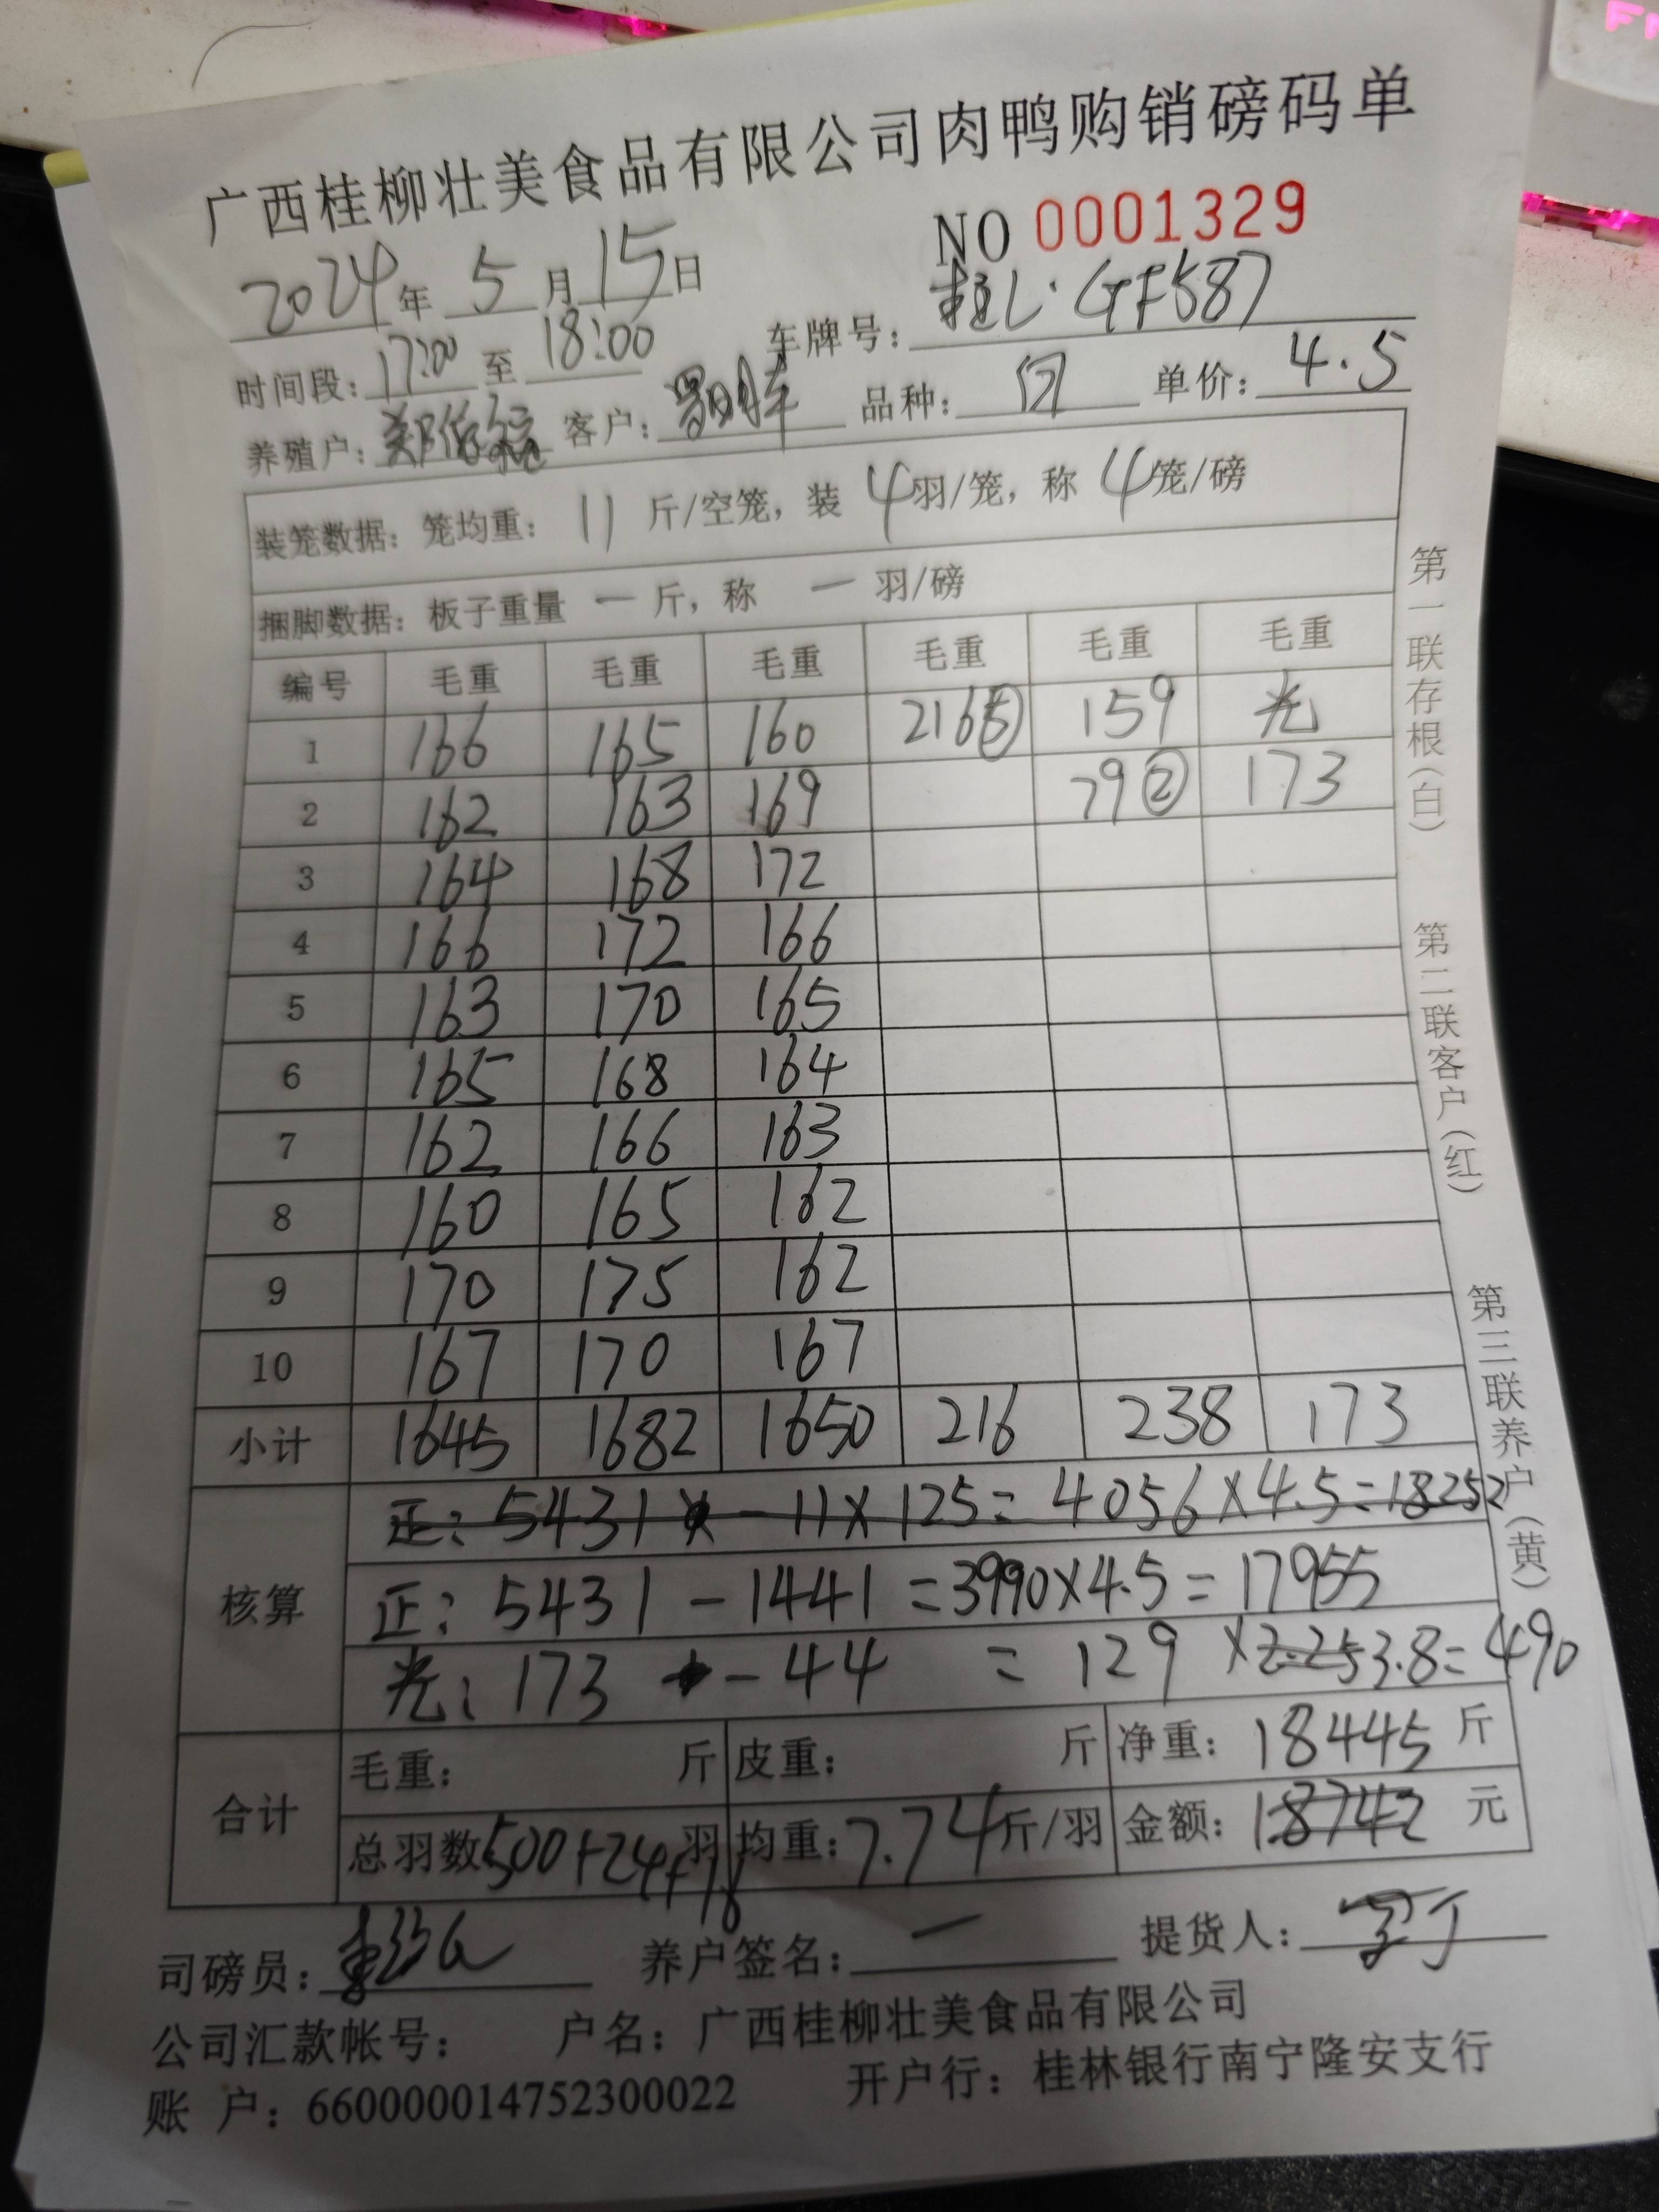 广西桂柳壮美食品有限公司肉鸭购销磅码单
NO 0001329
2024年 5月15日
时间段: 17:00 至 18:00 车牌号: 桂L·GF587
养殖户: 客户: 品种: 白 单价: 4.5
装笼数据: 笼均重: 11 斤/空笼, 装 4羽/笼, 称 4笼/磅
捆脚数据: 板子重量 一 斤, 称 一 羽/磅
编号 毛重 毛重 毛重 毛重 毛重 毛重
1 166 165 160 216⑤ 159 光
2 162 163 169 79② 173
3 164 168 172
4 166 172 166
5 163 170 165
6 165 168 164
7 162 166 163
8 160 165 162
9 170 175 162
10 167 170 167
小计 1645 1682 1650 216 238 173
核算
正: 5431 - 11×125= 4056×4.5=18252
正: 5431 - 1441 =3990×4.5= 17955
光: 173 - 44 = 129 ×2.25 3.8= 490
合计
毛重: 斤 皮重: 斤 净重: 18445 斤
总羽数500+24+18羽 均重: 7.74斤/羽 金额: 18742 元
司磅员: 养户签名: 一 提货人:
公司汇款帐号: 户名: 广西桂柳壮美食品有限公司
账 户: 660000014752300022 开户行: 桂林银行南宁隆安支行
第一联存根(白)
第二联客户(红)
第三联养户(黄)